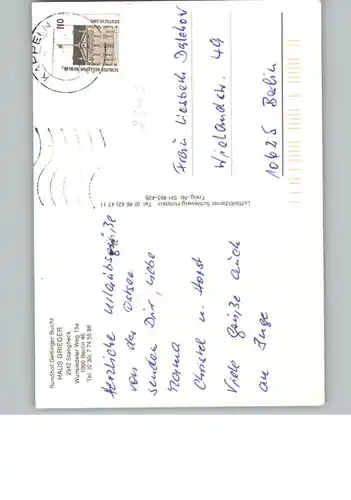 Rundhof/Geltinger Bucht
HAUS GRIEGER
2342 Stangheck
Wunsiedeler Weg 15a
1000 Berlin 46
Tel. (0 30) 7 74 55 86
Herzliche Urlaubsgrüße
von der Ostsee
senden Dir, liebe
Mama
Christel u. Horst
Viele Grüße auch
an Inge
Luftbilddienst Schleswig-Holstein · Tel. (0 46 42) 47 11
Freig.-Nr. SH 465-426
KAPPELN
110
DEUTSCHLAND
SCHLOSS BELLEVUE BERLIN
Frau Liesbeth
Wielandstr. 49
10625 Berlin